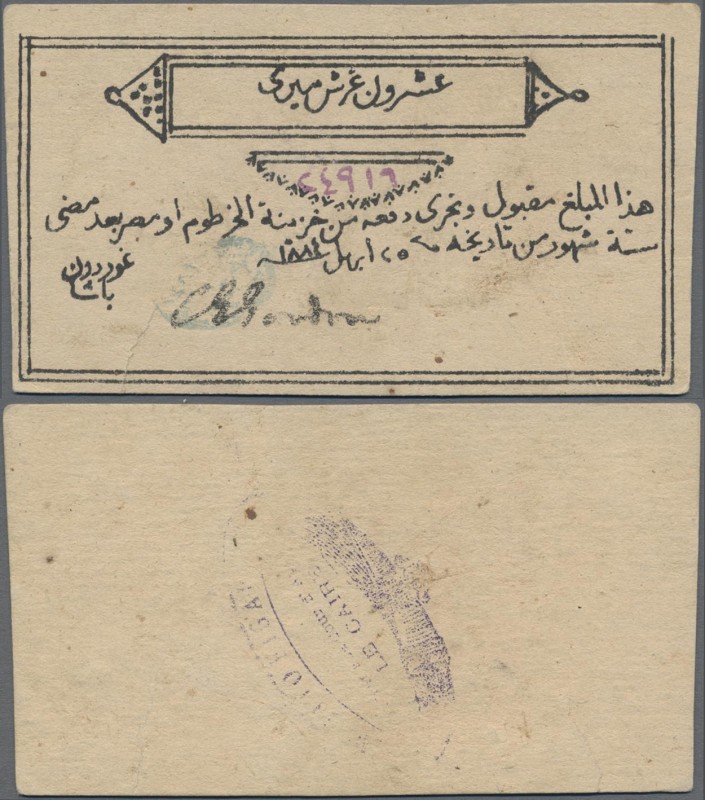 عشرون غرش ميرى
٢٤٩١٦
هذا المبلغ مقبول وتجرى دفعه من خزينة الخرطوم او مصر بعد مضى
ستة شهور من تاريخه ٢٥ أبريل ١٨٨٤سنه
غوردون
باشا
C G Gordon
LE CAIRE